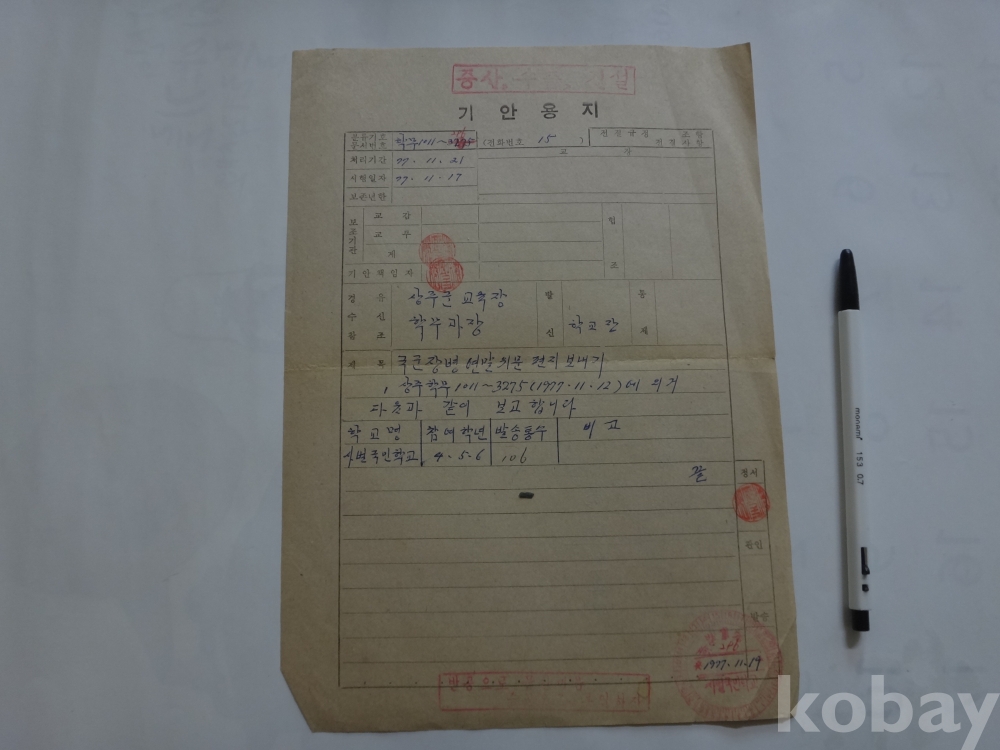 증산,
기 안 용 지
분류기호 문서번호 학무1011~ (전화번호 15 ) 전결규정 조 항 전결사항
처리기간 77. 11. 21 교 장
시행일자 77. 11. 17
보존년한
보조기관 교 감 협
교 무
계 조
기안책임자
경 유 상주군 교육장 발 통
수 신 학무과장 신 학교장 제
참 조
제 목 국군장병 연말 위문 편지 보내기
1. 상주학무 1011~3275(1977.11.12)에 의거
다음과 같이 보고 합니다
학교명 참여학년 발송통수 비고
국민학교 4.5.6 106
끝
정서
관인
발송
1977.11.19
monami 153 0.7
kobay